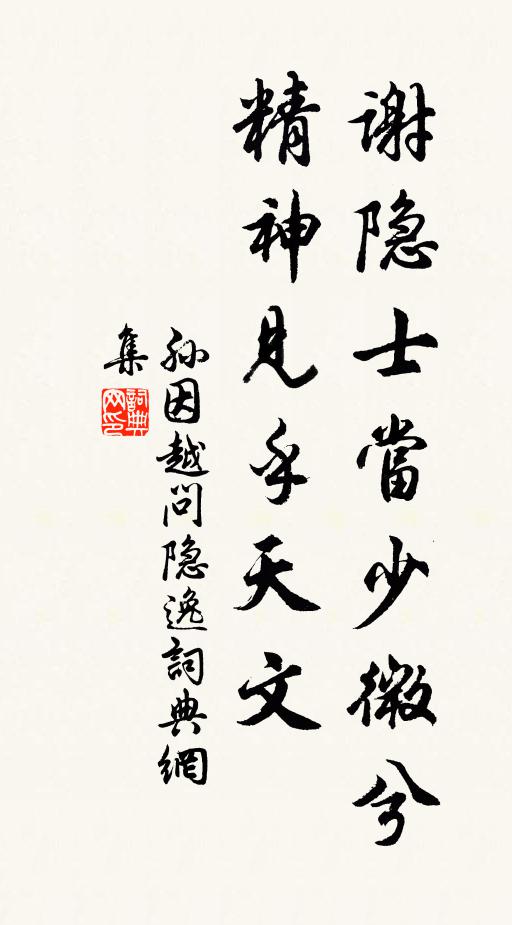 謝隐士當少微兮
精神見乎天文
孙因越問隐逸詞典網
集
詞典
网印